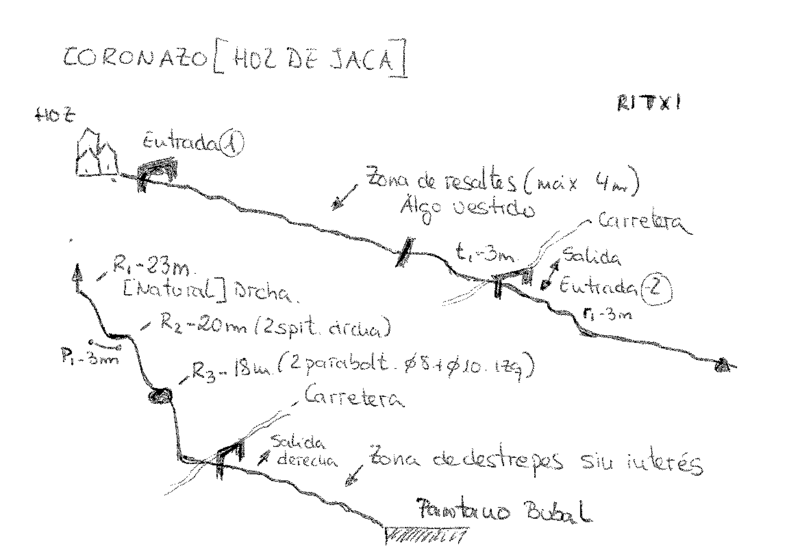 CORONAZO [HOZ DE JACA]
RITXI
HOZ
Entrada 1
Zona de resaltes (máix 4m)
Algo vestido
Carretera
t1-3m.
Salida
Entrada 2
r1-3m
R1-23m.
[Natural] Drcha.
R2-20m (2 spit. drcha)
P1-3m
R3-18m. (2 parabolt. ø8+ø10. izq)
Carretera
Salida
derecha
Zona de destrepes sin interés
Pantano Bubal